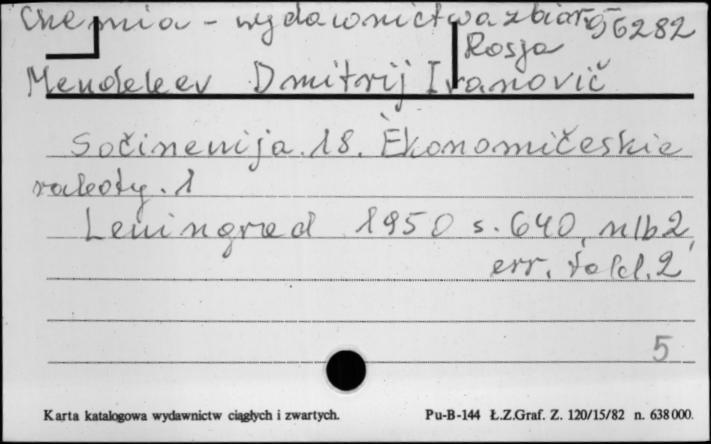 Chemia - wydawnictwa zbior. 96282
Rosja
Mendeleev Dmitrij Ivanovič
Sočinenija. 18. Èkonomičeskie
raboty. 1
Leningrad 1950 s. 640, nlb 2,
err. tabl. 2
5
Karta katalogowa wydawnictw ciągłych i zwartych. Pu-B-144 Ł.Z.Graf. Z. 120/15/82 n. 638000.